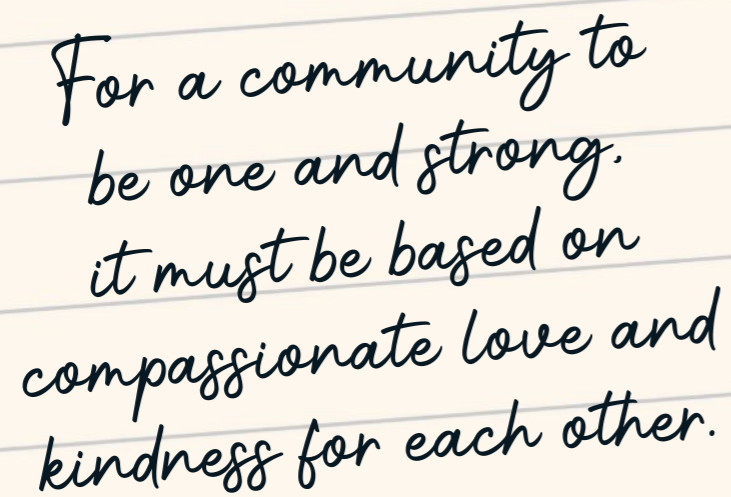 For a community to
be one and strong,
it must be based on
compassionate love and
kindness for each other.